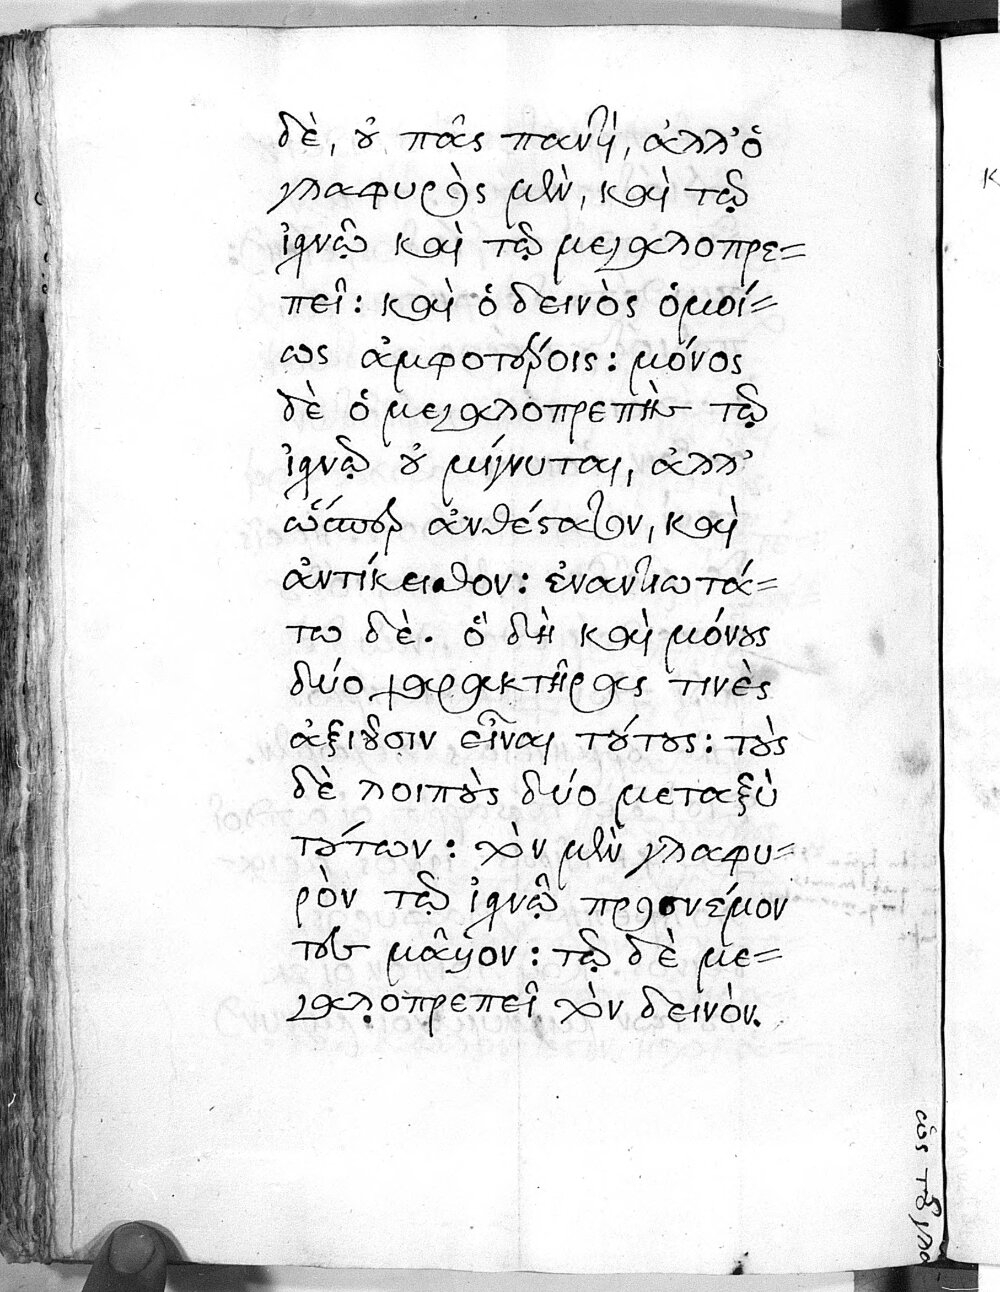 δὲ, οὐ πᾶς παντὶ, ἀλλ' ὁ
γλαφυρὸς μὲν, καὶ τῷ
ἰσχνῷ καὶ τῷ μεγαλοπρε=
πεῖ: καὶ ὁ δεινὸς ὁμοί=
ως ἀμφοτέροις: μόνος
δὲ ὁ μεγαλοπρεπὴς τῷ
ἰσχνῷ οὐ μίγνυται, ἀλλ'
ὥσπερ ἀνθέστατον, καὶ
ἀντίκεισθον: ἐναντιωτά=
τω δὲ. ὃ δὴ καὶ μόνους
δύο χαρακτῆρας τινὲς
ἀξιοῦσιν εἶναι τούτους: τοὺς
δὲ λοιποὺς δύο μεταξὺ
τούτων: τὸν μὲν γλαφυ=
ρὸν τῷ ἰσχνῷ προσνέμον
τες μᾶλλον: τῷ δὲ με=
γαλοπρεπεῖ τὸν δεινὸν.
ὡς τοῦ γλα
κ